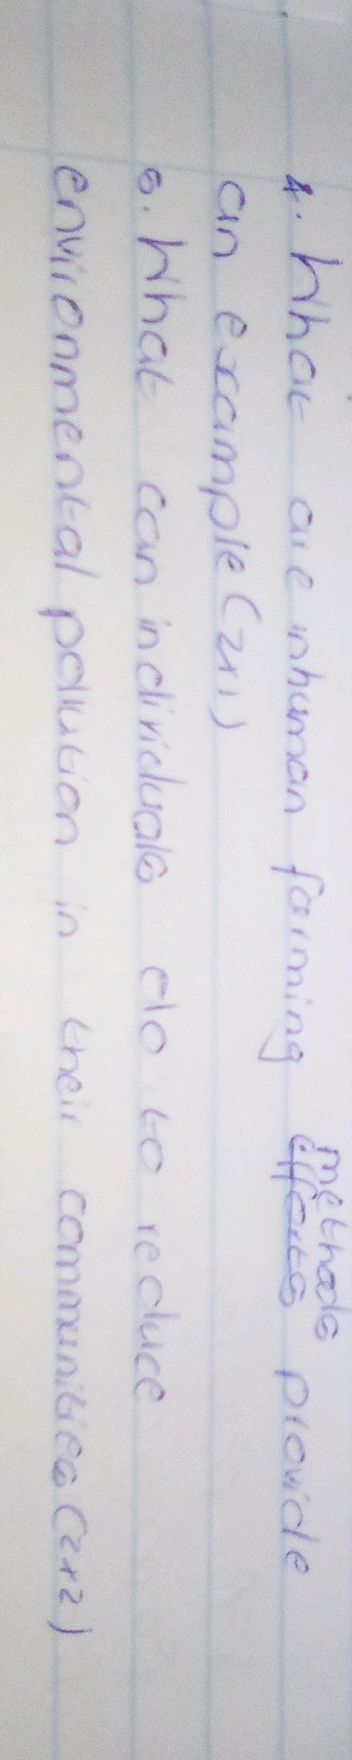 4. What are inhuman farming methods efforts provide
an example (2x1)
5. What can individuals do to reduce
environmental pollution in their communities (2+2)